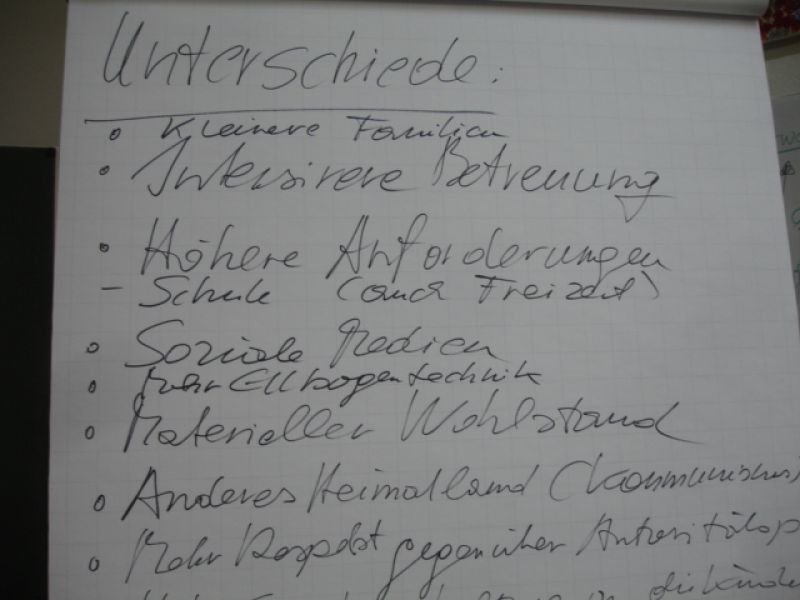 Unterschiede:
• Kleinere Familien
• Intensivere Betreuung
• Höhere Anforderungen
- Schule (auch Freizeit)
• Soziale Medien
• Mehr Ellbogentechnik
• Materieller Wohlstand
• Anderes Heimatland (Kommunismus)
• Mehr Respekt gegenüber